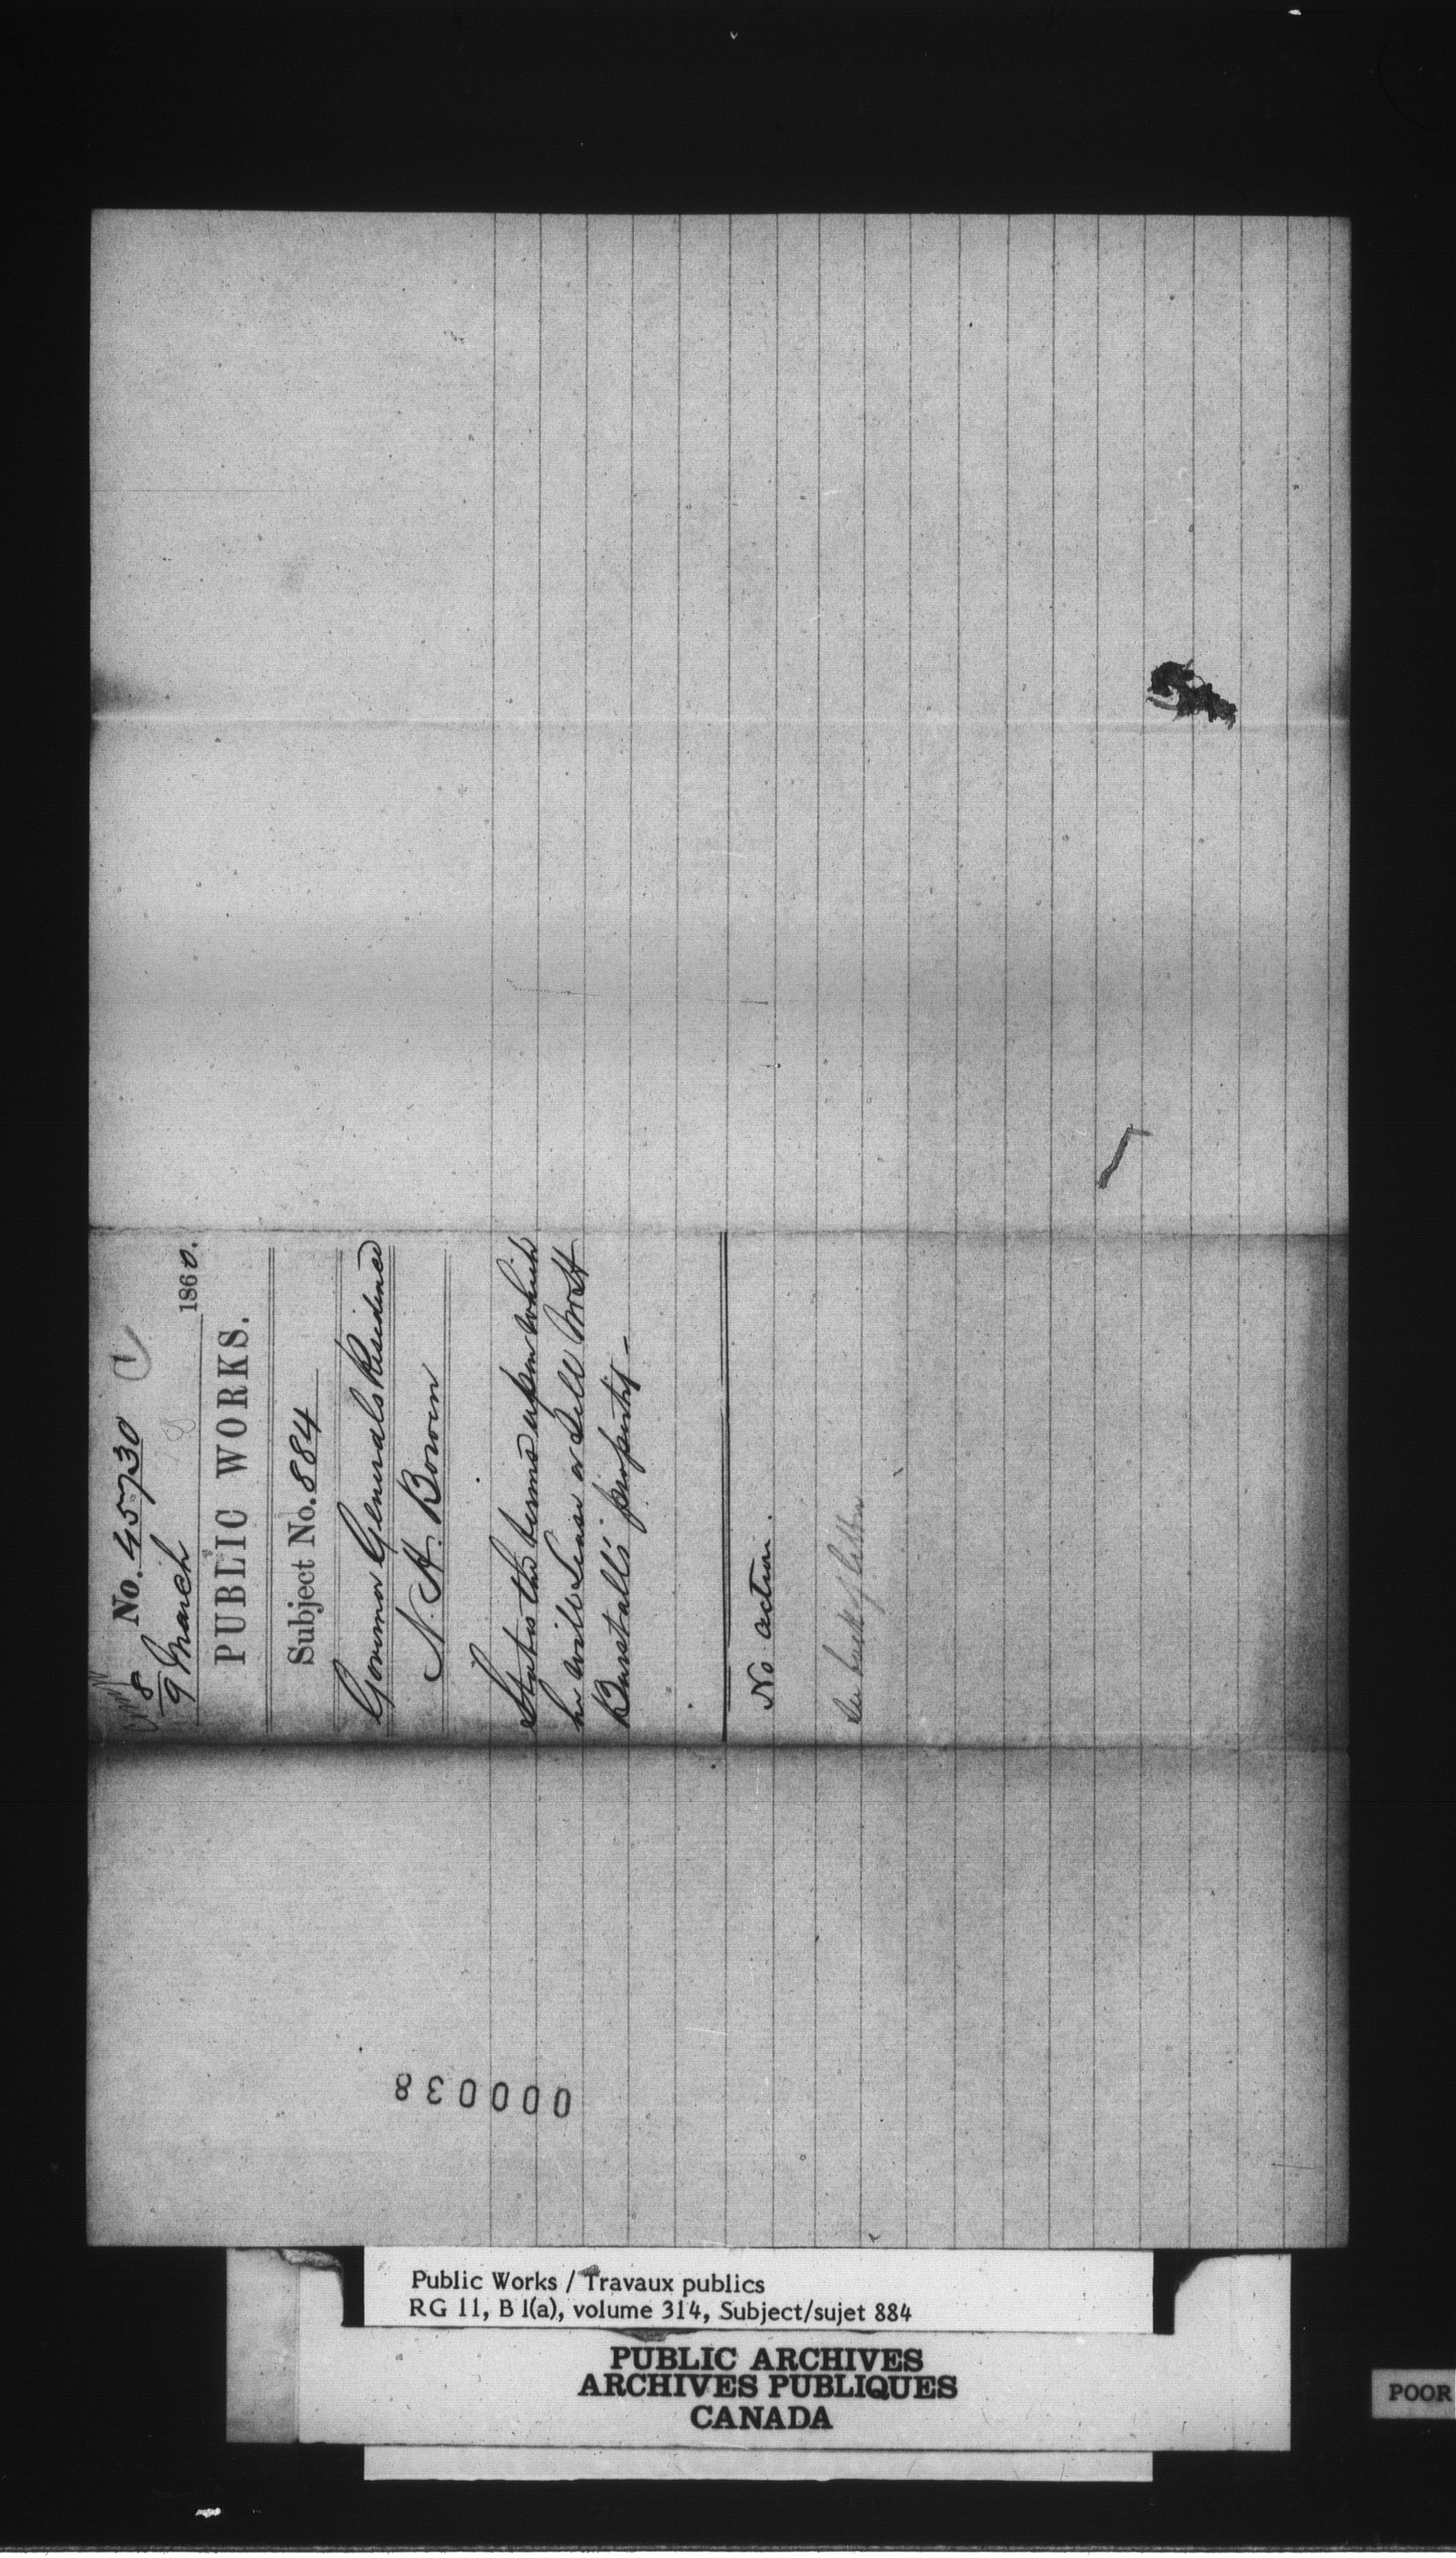 No. 45730
8
9 March 1860.
PUBLIC WORKS.
Subject No. 884
Governor Generals Residence
N. H. Bowen
States the terms upon which
he will Lease or Sell Mr H
Burstall's property –
No action.
See back of letter
000038
Public Works / Travaux publics
RG 11, B 1(a), volume 314, Subject/sujet 884
PUBLIC ARCHIVES
ARCHIVES PUBLIQUES
CANADA
POOR